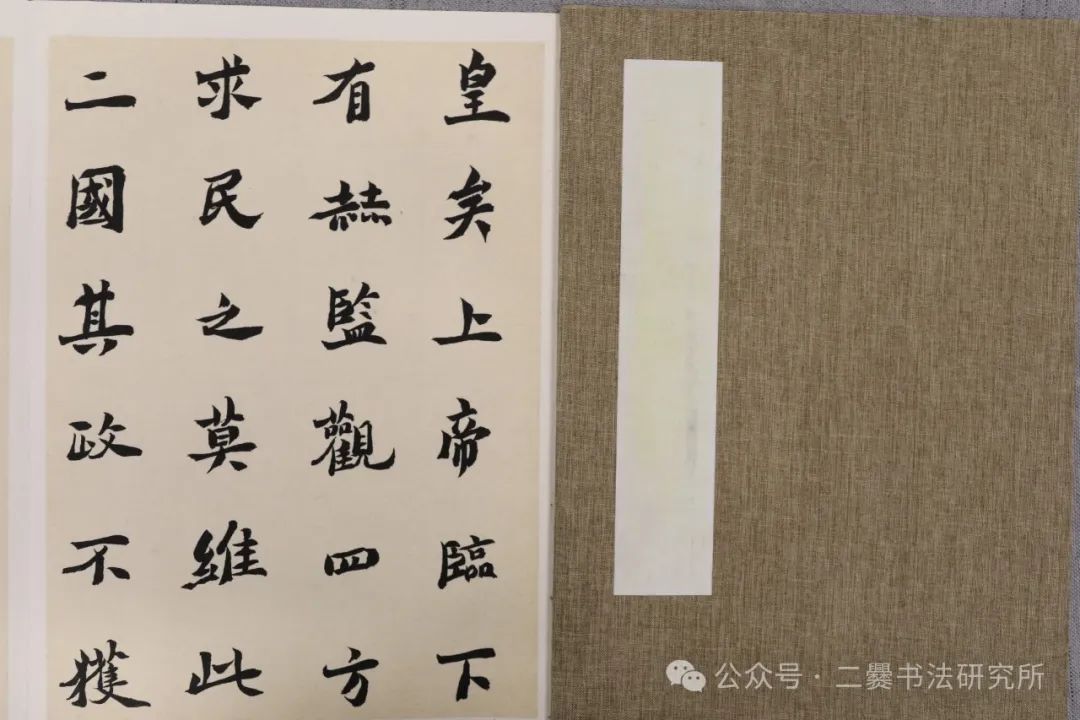 皇矣上帝臨下
有赫監觀四方
求民之莫維此
二國其政不獲
公众号·二爨书法研究所